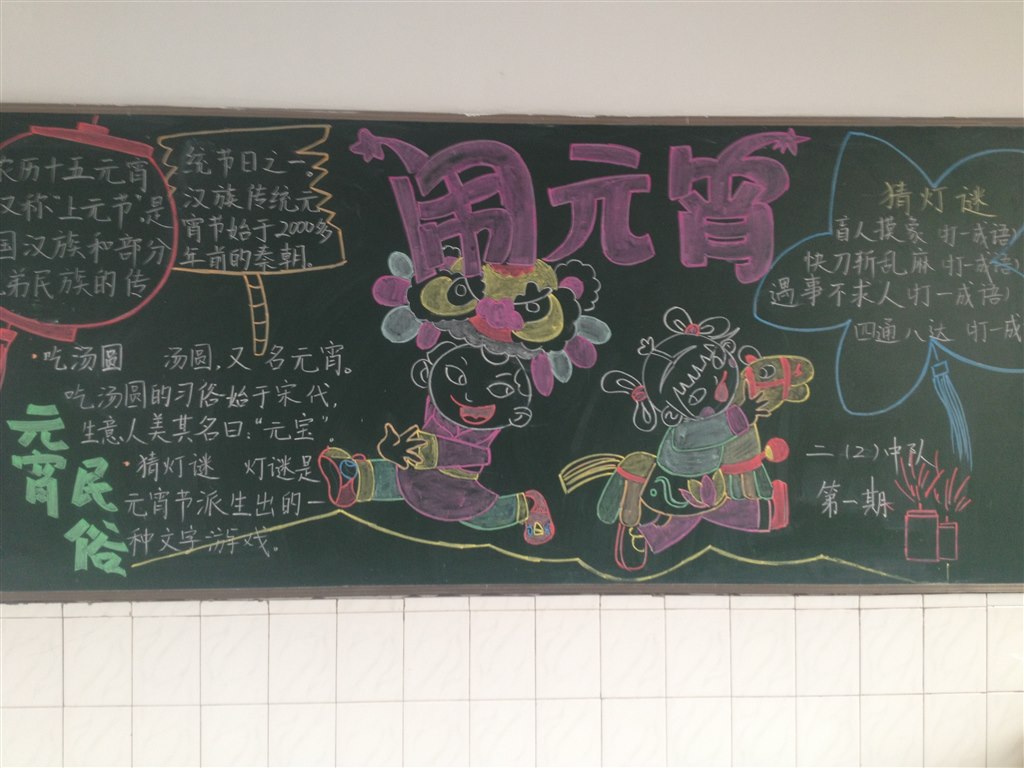 闹元宵
农历十五元宵
又称"上元节"是
国汉族和部分
弟民族的传
统节日之一。
汉族传统元
宵节始于2000多
年前的秦朝。
·吃汤圆 汤圆,又名元宵。
吃汤圆的习俗始于宋代,
生意人美其名曰:"元宝"。
·猜灯谜 灯谜是
元宵节派生出的一
种文字游戏。
元宵
民俗
猜灯谜
盲人摸象(打一成语)
快刀斩乱麻(打一成语)
遇事不求人(打一成语)
四通八达(打一成
二(2)中队
第一期